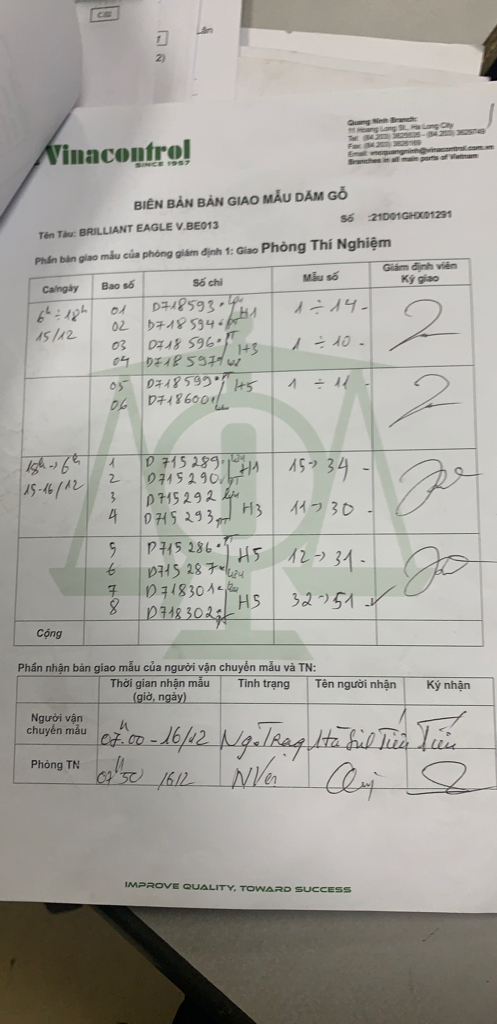 Vinacontrol
SINCE 1957
Quang Ninh Branch:
11 Hoang Long St., Ha Long City
Branches in all main ports of Vietnam
BIÊN BẢN BÀN GIAO MẪU DĂM GỖ
Số :21D01GHX01291
Tên Tàu: BRILLIANT EAGLE V.BE013
Phần bàn giao mẫu của phòng giám định 1: Giao Phòng Thí Nghiệm
Ca/ngày Bao số Số chì Mẫu số Giám định viên Ký giao
6h ÷ 18h 01 D718593 H1 1 ÷ 14 -
15/12 02 D718594
03 D718596 H3 1 ÷ 10 -
04 D718597
05 D718599 H5 1 ÷ 11 -
06 D718600
18h -> 6h 1 D715289 H1 15 -> 34 -
15-16/12 2 D715290
3 D715292 H3 11 -> 30 -
4 D715293
5 D715286 H5 12 -> 31 -
6 D715287
7 D718301 H5 32 -> 51
8 D718302
Cộng
Phần nhận bàn giao mẫu của người vận chuyển mẫu và TN:
Thời gian nhận mẫu (giờ, ngày) Tình trạng Tên người nhận Ký nhận
Người vận chuyển mẫu 07h.00 - 16/12 Ng.Trạng Tiến Tiến
Phòng TN 07h50 16/12 NVẹn Quý
IMPROVE QUALITY, TOWARD SUCCESS